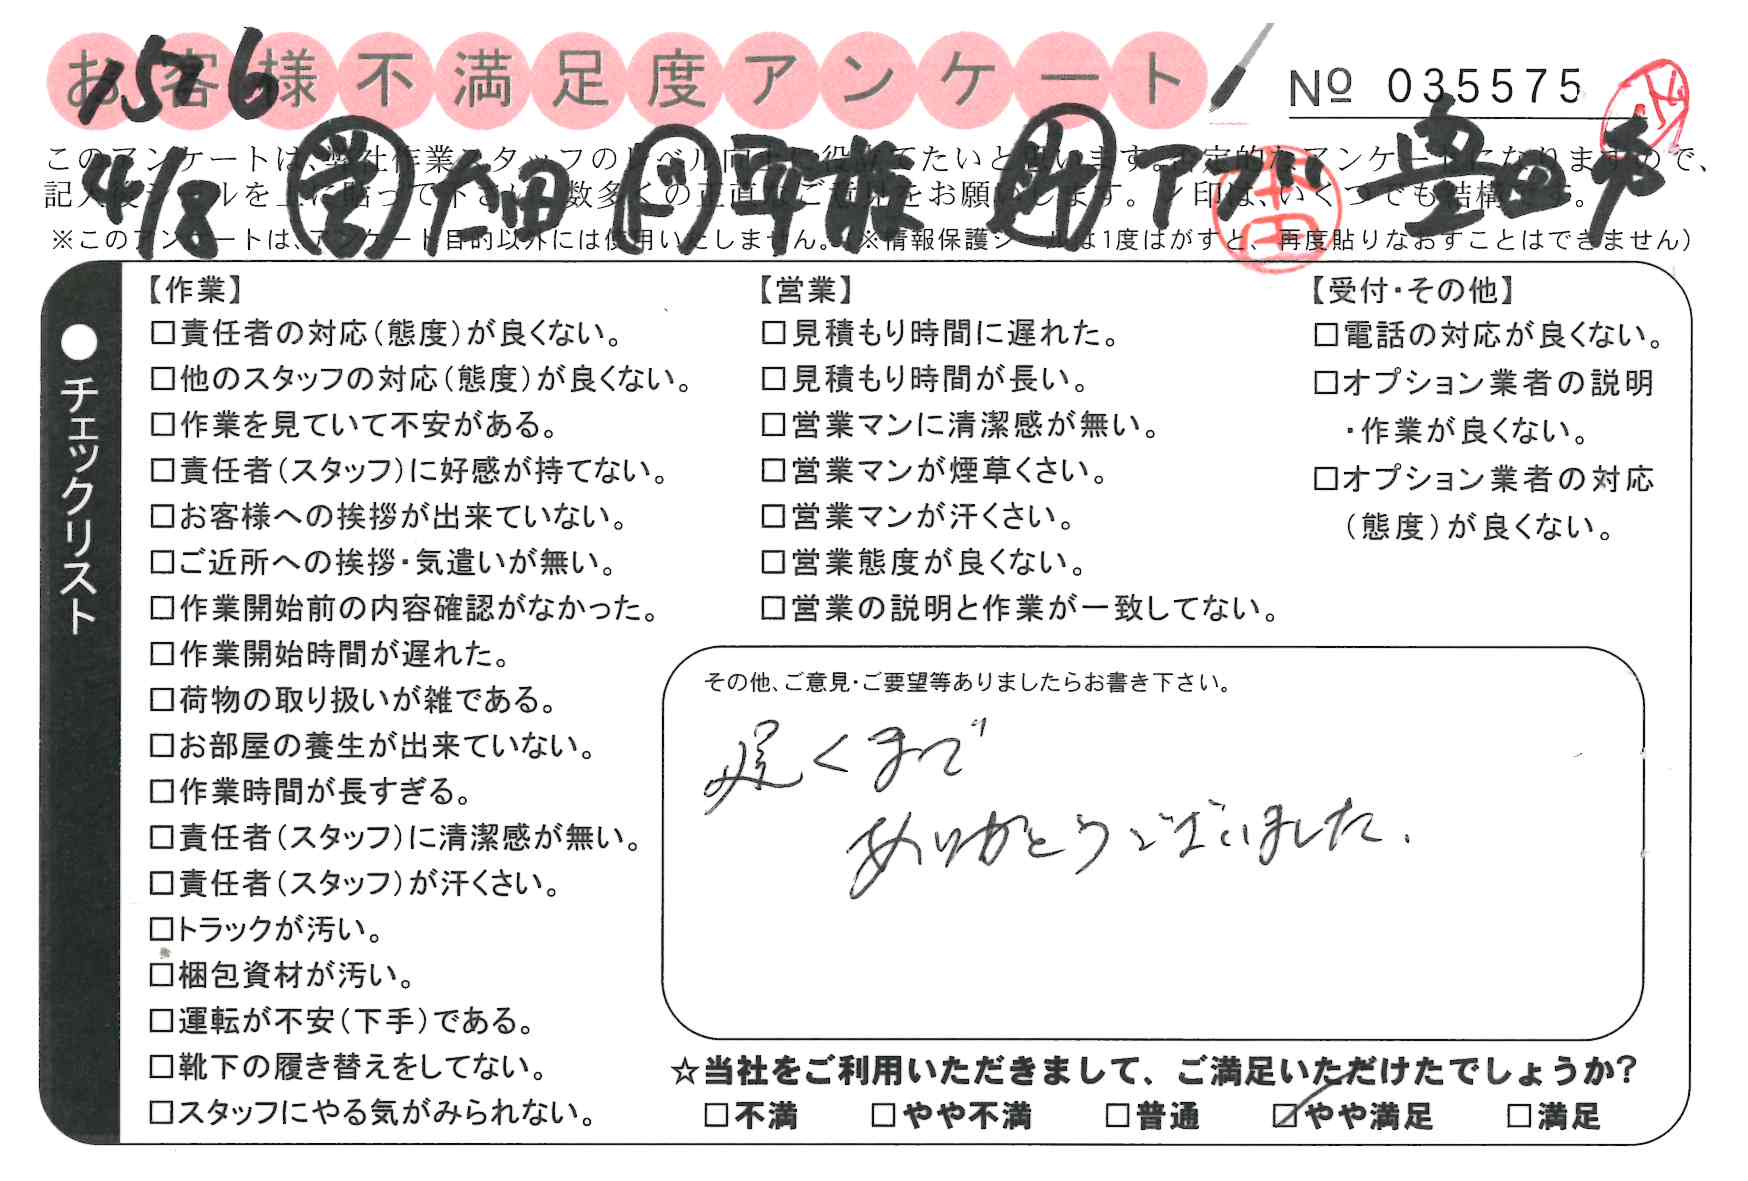 お客様不満足度アンケート
№ 035575
1576
4/8 営 太田 ド 平嶺 付 アプル 豊田市
このアンケートは、弊社作業スタッフのレベル向上に役立てたいと思います。否定的なアンケートになりますので、
記入後シールを上に貼って下さい。数多くの正直なご意見をお願いします。レ印は、いくつでも結構です。
※このアンケートは、アンケート目的以外には使用いたしません。(※情報保護シールは1度はがすと、再度貼りなおすことはできません)
●チェックリスト
【作業】
□責任者の対応(態度)が良くない。
□他のスタッフの対応(態度)が良くない。
□作業を見ていて不安がある。
□責任者(スタッフ)に好感が持てない。
□お客様への挨拶が出来ていない。
□ご近所への挨拶・気遣いが無い。
□作業開始前の内容確認がなかった。
□作業開始時間が遅れた。
□荷物の取り扱いが雑である。
□お部屋の養生が出来ていない。
□作業時間が長すぎる。
□責任者(スタッフ)に清潔感が無い。
□責任者(スタッフ)が汗くさい。
□トラックが汚い。
□梱包資材が汚い。
□運転が不安(下手)である。
□靴下の履き替えをしてない。
□スタッフにやる気がみられない。
【営業】
□見積もり時間に遅れた。
□見積もり時間が長い。
□営業マンに清潔感が無い。
□営業マンが煙草くさい。
□営業マンが汗くさい。
□営業態度が良くない。
□営業の説明と作業が一致してない。
【受付・その他】
□電話の対応が良くない。
□オプション業者の説明
・作業が良くない。
□オプション業者の対応
(態度)が良くない。
その他、ご意見・ご要望等ありましたらお書き下さい。
遅くまで
ありがとうございました.
☆当社をご利用いただきまして、ご満足いただけたでしょうか?
□不満 □やや不満 □普通 ☑やや満足 □満足